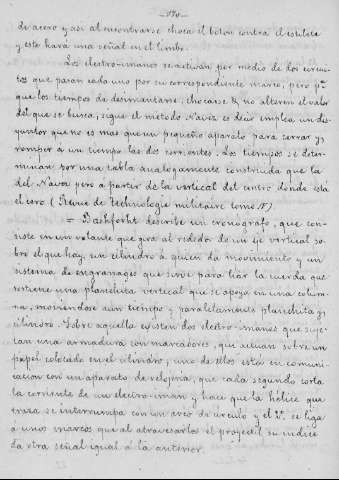 -170-
de acero y así al encontrarse choca el boton contra el estilete
y este hará una señal en el limbo.
Los electro-imanes se activan por medio de dos circui-
tos que pasan cada uno por su correspondiente marco, pero pa.
que los tiempos de desimantarse, chocarse & no alteren el valor
del que se busca, sigue el método Navez es decir emplea un des-
yuntor que no es mas que un pequeño aparato para cerrar y
romper a un tiempo las dos corrientes. Los tiempos se deter-
minan por una tabla analogamente construida que la
del Navez pero a partir de la vertical del centro donde está
el cero (Revue de Technologie militaire tomo IV)
= Bashforht describe un cronógrafo, que con-
siste en un volante que gira al rededor de un eje vertical so-
bre el que hay, un cilindro á quien da movimiento y un
sistema de engranages que sirve para liar la cuerda que
sostiene una planchita vertical que se apoya en una colum-
na, moviéndose aun tiempo y paralelamente planchita y
cilindro. Sobre aquella existen dos electro-imanes que suje-
tan una armadura con marcadores, que actuan sobre un
papel colocado en el cilindro, uno de ellos está en comuni-
cacion con un aparato de relojeria, que cada segundo corta
la corriente de un electro-iman y hace que la hélice que
traza se interrumpa con un arco de círculo y el 2º. se liga
á unos marcos que al atravesarlos el proyectil su indice
da otra señal igual á la anterior.